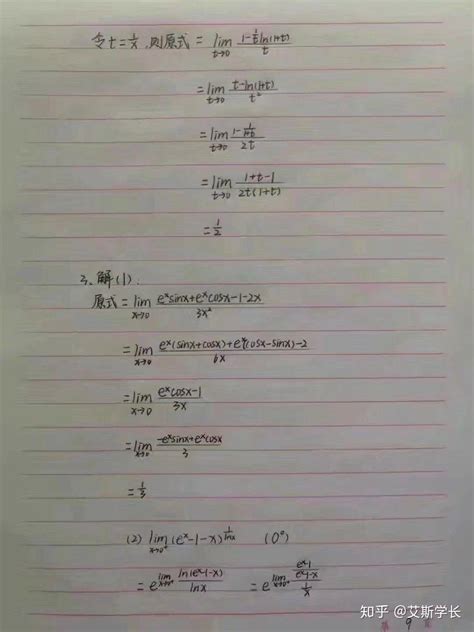 令t=1/x,则原式= lim_{t→0} (1-(1/t)ln(1+t))/t
= lim_{t→0} (t-ln(1+t))/t²
= lim_{t→0} (1-1/(1+t))/(2t)
= lim_{t→0} (1+t-1)/(2t(1+t))
= 1/2
3、解(1):
原式= lim_{x→0} (eˣsinx+eˣcosx-1-2x)/(3x²)
= lim_{x→0} (eˣ(sinx+cosx)+eˣ(cosx-sinx)-2)/(6x)
= lim_{x→0} (eˣcosx-1)/(3x)
= lim_{x→0} (-eˣsinx+eˣcosx)/3
= 1/3
(2) lim_{x→0⁺} (eˣ-1-x)^{1/lnx} (0⁰)
= e^{lim_{x→0⁺} ln(eˣ-1-x)/lnx} = e^{lim_{x→0⁺} ((eˣ-1)/(eˣ-1-x))/(1/x)}
知乎 @艾斯学长
第 9 页